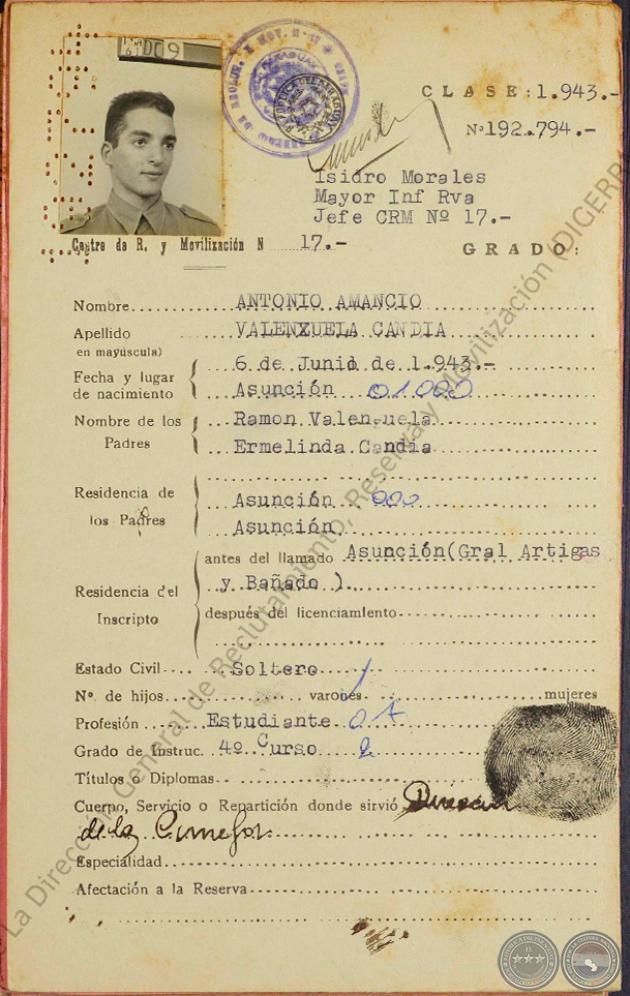 CLASE: 1.943.-
Nº 192.794.-
Isidro Morales
Mayor Inf Rva
Jefe CRM Nº 17.-
Centro de R. y Movilización N 17.-
GRADO:
Nombre ANTONIO AMANCIO
Apellido VALENZUELA CANDIA
en mayúscula)
Fecha y lugar de nacimiento 6 de Junio de 1.943.-
Asunción 01000
Nombre de los Padres Ramon Valenzuela
Ermelinda Candia
Residencia de los Padres Asunción 000
Asunción
Residencia del Inscripto antes del llamado Asunción(Gral Artigas
y Bañado ).
después del licenciamiento
Estado Civil Soltero
Nº. de hijos varones mujeres
Profesión Estudiante 01
Grado de Instruc. 4º Curso 2
Títulos o Diplomas
Cuerpo, Servicio o Repartición donde sirvió
de la
Especialidad
Afectación a la Reserva
La Dirección General de Reclutamiento, Reserva y Movilización (DIGERR